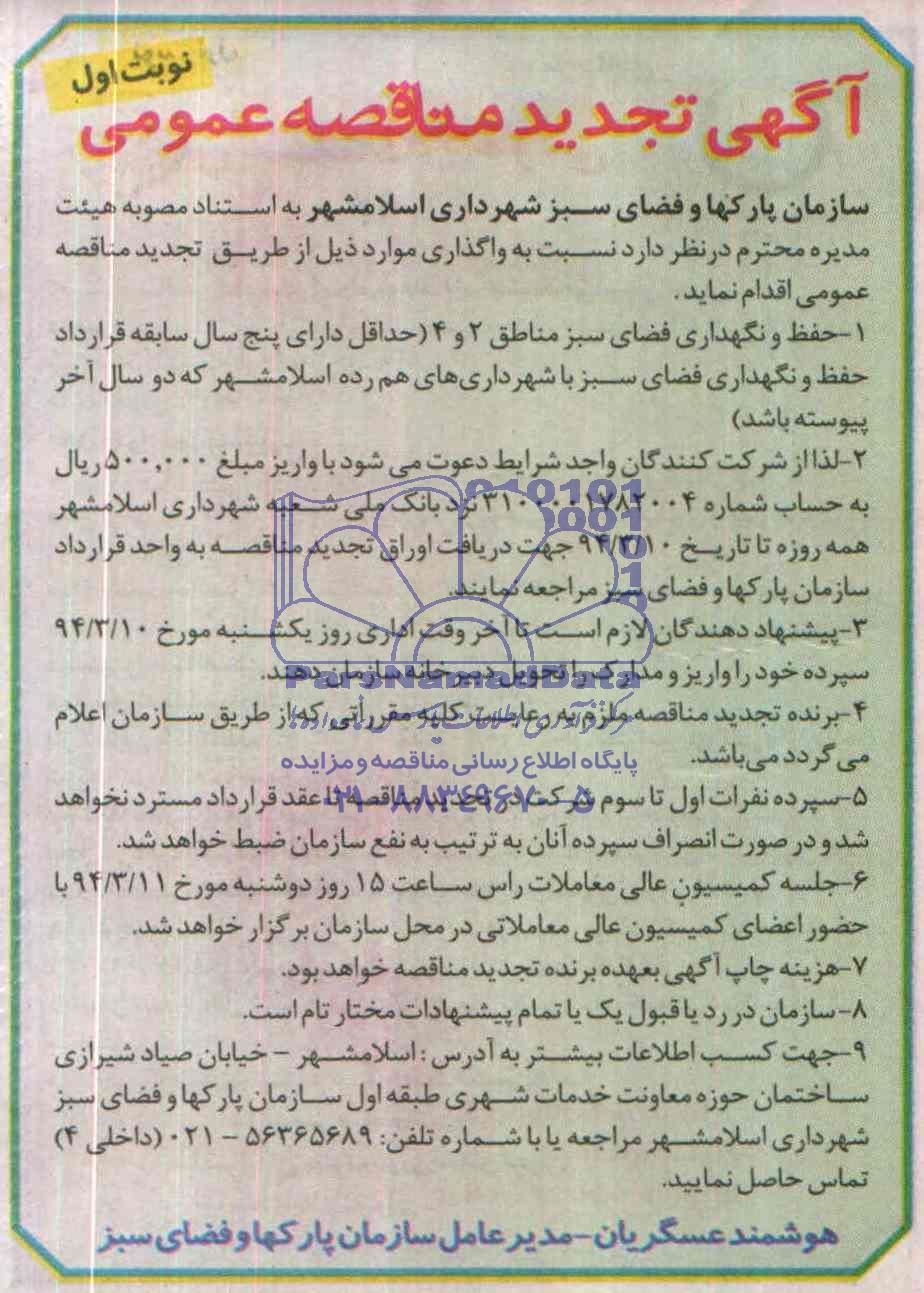 نوبت اول
آگهی تجدید مناقصه عمومی
سازمان پارکها و فضای سبز شهرداری اسلامشهر به استناد مصوبه هیئت
مدیره محترم درنظر دارد نسبت به واگذاری موارد ذیل از طریق تجدید مناقصه
عمومی اقدام نماید.
۱-حفظ و نگهداری فضای سبز مناطق ۲ و ۴ (حداقل دارای پنج سال سابقه قرارداد
حفظ و نگهداری فضای سبز با شهرداری‌های هم رده اسلامشهر که دو سال آخر
پیوسته باشد)
۲-لذا از شرکت کنندگان واجد شرایط دعوت می شود با واریز مبلغ ۵۰۰,۰۰۰ ریال
به حساب شماره ۳۱۰۰۰۰۱۷۸۲۰۰۴ نزد بانک ملی شعبه شهرداری اسلامشهر
همه روزه تا تاریخ ۹۴/۳/۱۰ جهت دریافت اوراق تجدید مناقصه به واحد قرارداد
سازمان پارکها و فضای سبز مراجعه نمایند.
۳-پیشنهاد دهندگان لازم است تا آخر وقت اداری روز یکشنبه مورخ ۹۴/۳/۱۰
سپرده خود را واریز و مدارک را تحویل دبیرخانه سازمان دهند.
ParsNamadData
۴-برنده تجدید مناقصه ملزم به رعایت کلیه مقرراتی که از طریق سازمان اعلام
می گردد می‌باشد.
پایگاه اطلاع رسانی مناقصه و مزایده
۵-سپرده نفرات اول تا سوم شرکت در تجدید مناقصه تا عقد قرارداد مسترد نخواهد
۰۲۱-۸۸۳۴۹۶۷۰-۵
شد و در صورت انصراف سپرده آنان به ترتیب به نفع سازمان ضبط خواهد شد.
۶-جلسه کمیسیون عالی معاملات راس ساعت ۱۵ روز دوشنبه مورخ ۹۴/۳/۱۱ با
حضور اعضای کمیسیون عالی معاملاتی در محل سازمان برگزار خواهد شد.
۷-هزینه چاپ آگهی بعهده برنده تجدید مناقصه خواهد بود.
۸-سازمان در رد یا قبول یک یا تمام پیشنهادات مختار تام است.
۹-جهت کسب اطلاعات بیشتر به آدرس : اسلامشهر - خیابان صیاد شیرازی
ساختمان حوزه معاونت خدمات شهری طبقه اول سازمان پارکها و فضای سبز
شهرداری اسلامشهر مراجعه یا با شماره تلفن: ۵۶۳۶۵۶۸۹ - ۰۲۱ (داخلی ۴)
تماس حاصل نمایید.
هوشمند عسگریان-مدیر عامل سازمان پارکها و فضای سبز